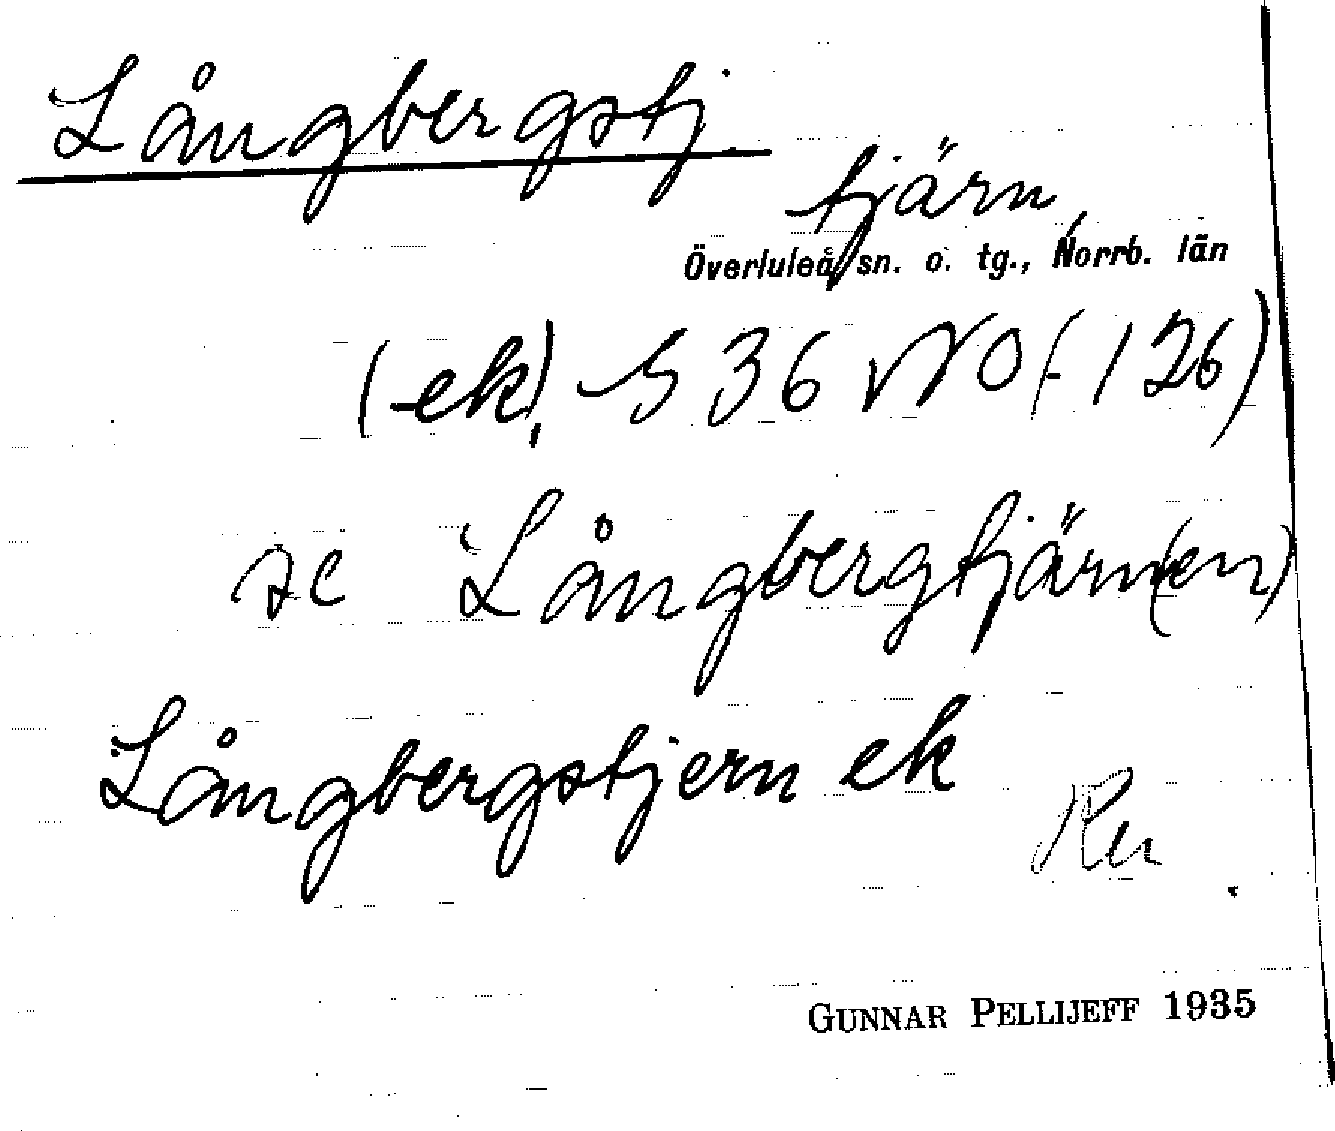 Långbergstj.
tjärn,
Överluleå sn. o. tg., Norrb. län
(ek), S 36 NO (126)
se Långbergtjärn(en)
Långbergstjern ek
GUNNAR PELLIJEFF 1935